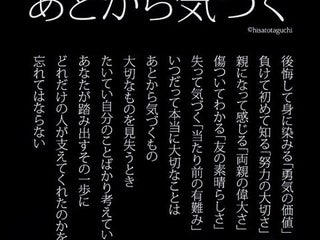 あとから気づく
©hisatotaguchi
後悔して身に染みる「勇気の価値」
負けて初めて知る「努力の大切さ」
親になって感じる「両親の偉大さ」
傷ついてわかる「友の素晴らしさ」
失って気づく「当たり前の有難み」
いつだって本当に大切なことは
あとから気づくもの
大切なものを見失うとき
たいてい自分のことばかり考えてい
あなたが踏み出すその一歩に
どれだけの人が支えてくれたのかを
忘れてはならない